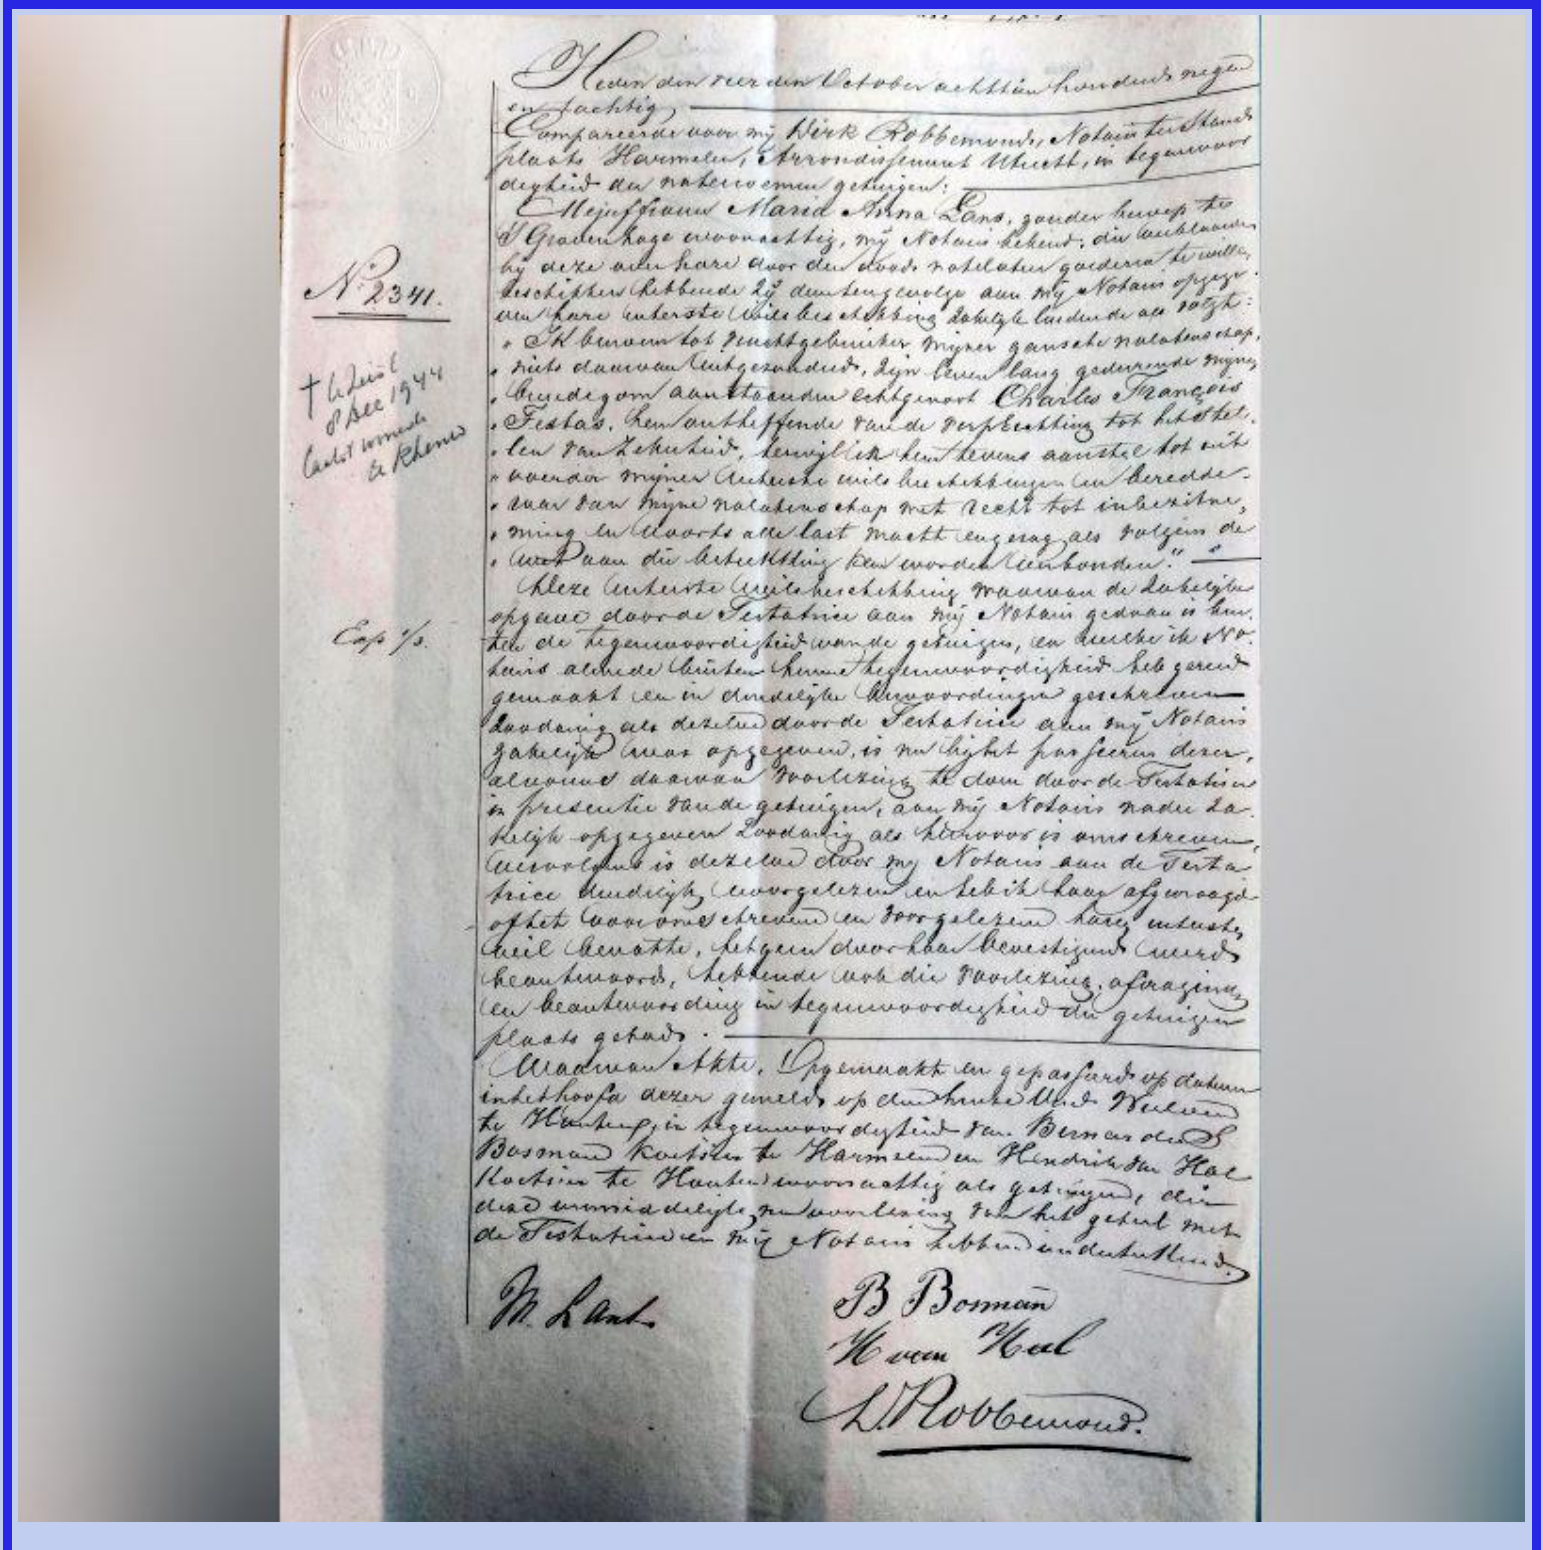 Heden den vierden October achttien honderd negen
en tachtig,
Compareerde voor mij Dirk Robbemond, Notaris ter Stand
plaats Harmelen, Arrondissement Utrecht, in tegenwoor
digheid der natenoemen getuigen:
Mejuffrouw Maria Anna Lans, zonder beroep te
S'Gravenhage woonachtig, mij Notaris bekend; die verklaarde
bij deze over hare door den dood natelaten goederen te willen
beschikken hebbende zij dientengevolge aan mij Notaris opgege
ven hare uiterste wilsbeschikking zakelijk luidende als volgt:
" Ik benoem tot vruchtgebruiker mijner gansche nalatenschap,
" niets daarvan uitgezonderd, zijn leven lang gedurende mijnen
" bruidegom aanstaanden echtgenoot Charles François
" Testas, hem ontheffende van de verplichting tot het stel
" len van zekerheid, terwijl ik hem tevens aanstel tot uit
" voerder mijner uiterste wilsbeschikkingen en beredde-
" raar van mijne nalatenschap met recht tot inbezitne,
" ming en voorts alle last macht en gezag als volgens de
" wet aan die betrekking kan worden verbonden." "
Deze uiterste wilsbeschikking waarvan de zakelijke
opgave door de Testatrice aan mij Notaris gedaan is bui
ten de tegenwoordigheid van de getuigen, en welke ik No-
taris almede buiten hunne tegenwoordigheid heb gereed
gemaakt en in duidelijke bewoordingen geschreven
zoodanig als dezelve door de Testatrice aan mij Notaris
zakelijk was opgegeven, is nu bij het passeeren dezer,
alvorens daarvan voorlezing te doen door de Testatrice
in presentie van de getuigen, aan mij Notaris nader za-
kelijk opgegeven zoodanig als hiervoor is omschreven,
vervolgens is dezelve door mij Notaris aan de Testa
trice duidelijk voorgelezen en heb ik haar afgevraagd
of het vooromschreven en voorgelezene haren uitersten
wil bevatte, hetgeen door haar bevestigend werd
beantwoord, hebbende ook die voorlezing, afvraging
en beantwoording in tegenwoordigheid der getuigen
plaats gehad.
Waarvan Akte, Opgemaakt en gepasseerd op datum
in het hoofd dezer gemeld op den huize Oud Wulven
te Houten, in tegenwoordigheid van Bernardus
Bosman koetsier te Harmelen en Hendrik van Hal
Koetsier te Houten woonachtig als getuigen, die
deze onmiddelijk na voorlezing van het geheel met
de Testatrice en mij Notaris hebben onderteekend.
No. 2341.
† te Zeist
8 Dec 1944
laatst wonende
te Rhenen
Exp 1/3.
M. Lans
B Bosman
H van Hal
D. Robbemond.